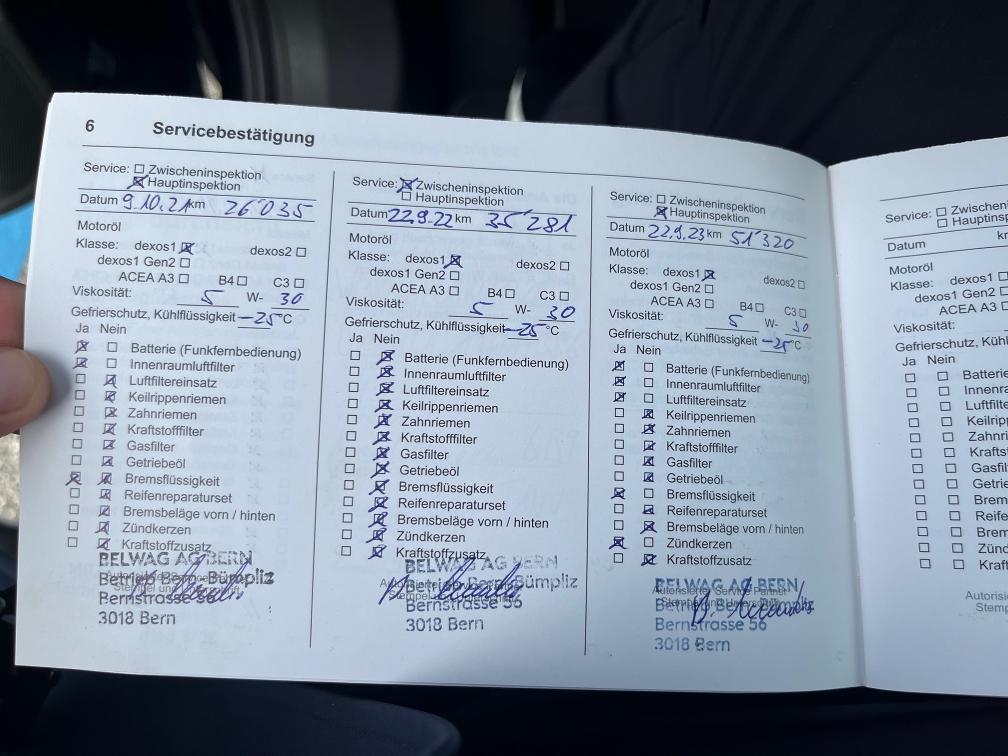 6 Servicebestätigung
Service: Zwischeninspektion
Hauptinspektion
Datum 9.10.21 km 26'035
Motoröl
Klasse: dexos1 dexos2
dexos1 Gen2
ACEA A3 B4 C3
Viskosität: 5 W- 30
Gefrierschutz, Kühlflüssigkeit -25 °C
Ja Nein
Batterie (Funkfernbedienung)
Innenraumluftfilter
Luftfiltereinsatz
Keilrippenriemen
Zahnriemen
Kraftstofffilter
Gasfilter
Getriebeöl
Bremsflüssigkeit
Reifenreparaturset
Bremsbeläge vorn / hinten
Zündkerzen
Kraftstoffzusatz
BELWAG AG BERN
Betrieb Bern-Bümpliz
Bernstrasse 56
3018 Bern
Service: Zwischeninspektion
Hauptinspektion
Datum 22.9.22 km 35'281
Motoröl
Klasse: dexos1 dexos2
dexos1 Gen2
ACEA A3 B4 C3
Viskosität: 5 W- 30
Gefrierschutz, Kühlflüssigkeit -25 °C
Ja Nein
Batterie (Funkfernbedienung)
Innenraumluftfilter
Luftfiltereinsatz
Keilrippenriemen
Zahnriemen
Kraftstofffilter
Gasfilter
Getriebeöl
Bremsflüssigkeit
Reifenreparaturset
Bremsbeläge vorn / hinten
Zündkerzen
Kraftstoffzusatz
BELWAG AG BERN
Betrieb Bern-Bümpliz
Bernstrasse 56
3018 Bern
Service: Zwischeninspektion
Hauptinspektion
Datum 22.9.23 km 51'320
Motoröl
Klasse: dexos1 dexos2
dexos1 Gen2
ACEA A3 B4 C3
Viskosität: 5 W- 30
Gefrierschutz, Kühlflüssigkeit -25 °C
Ja Nein
Batterie (Funkfernbedienung)
Innenraumluftfilter
Luftfiltereinsatz
Keilrippenriemen
Zahnriemen
Kraftstofffilter
Gasfilter
Getriebeöl
Bremsflüssigkeit
Reifenreparaturset
Bremsbeläge vorn / hinten
Zündkerzen
Kraftstoffzusatz
BELWAG AG BERN
Autorisierter Service Partner
Bernstrasse 56
3018 Bern
Service: Zwischen
Hauptins
Datum km
Motoröl
Klasse: dexos1
dexos1 Gen2
ACEA A3
Viskosität:
Gefrierschutz, Kühl
Ja Nein
Batterie
Innenra
Luftfilte
Keilripp
Zahnri
Kraftst
Gasfilt
Getrie
Brem
Reife
Brem
Zünd
Kraft
Autorisie
Stemp